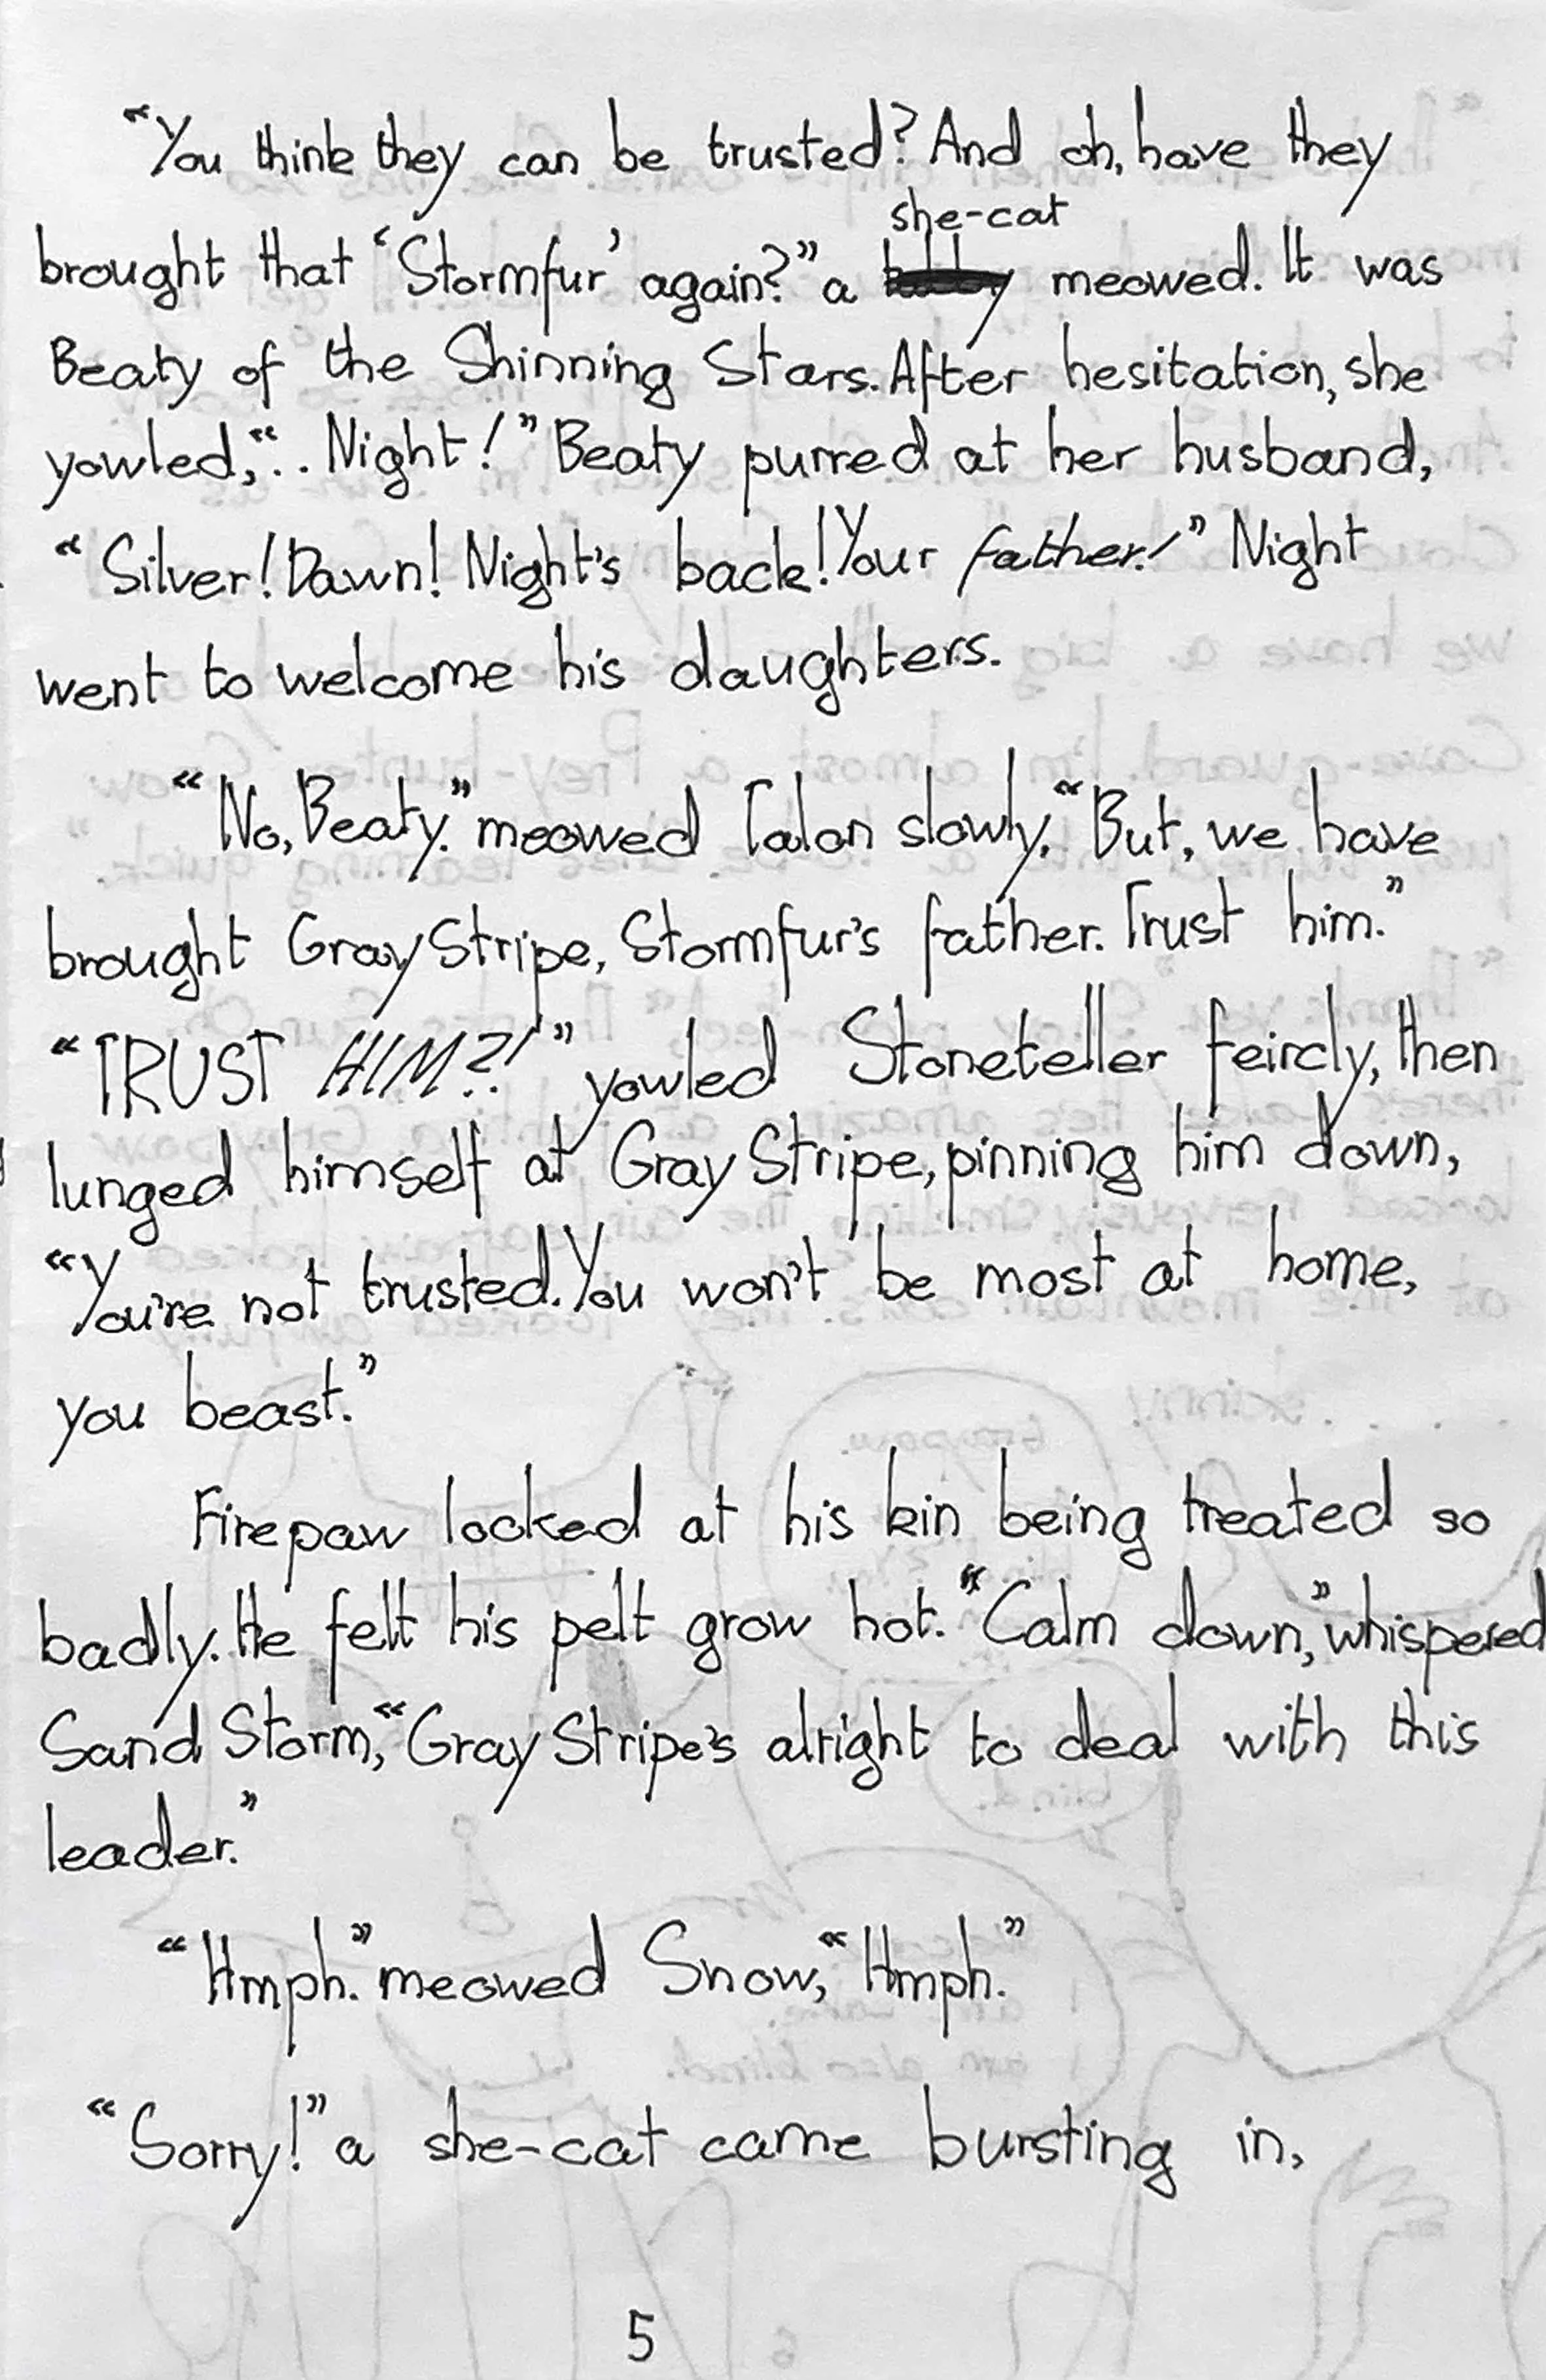 “You think they can be trusted? And oh, have they
she-cat
brought that ‘Stormfur’ again?” a meowed. It was
Beaty of the Shinning Stars. After hesitation, she
yowled, “.. Night!” Beaty purred at her husband,
“Silver! Dawn! Night's back! Your father!” Night
went to welcome his daughters.
“No, Beaty.” meowed Talon slowly, “But, we have
brought GrayStripe, Stormfur's father. Trust him.”
“TRUST HIM?!” yowled Stoneteller feircly, then
lunged himself at GrayStripe, pinning him down,
“You're not trusted. You won't be most at home,
you beast.”
Firepaw looked at his kin being treated so
badly. He felt his pelt grow hot. “Calm down,” whispered
SandStorm, “GrayStripe's alright to deal with this
leader.”
“Hmph.” meowed Snow, “Hmph.”
“Sorry!” a she-cat came bursting in,
5